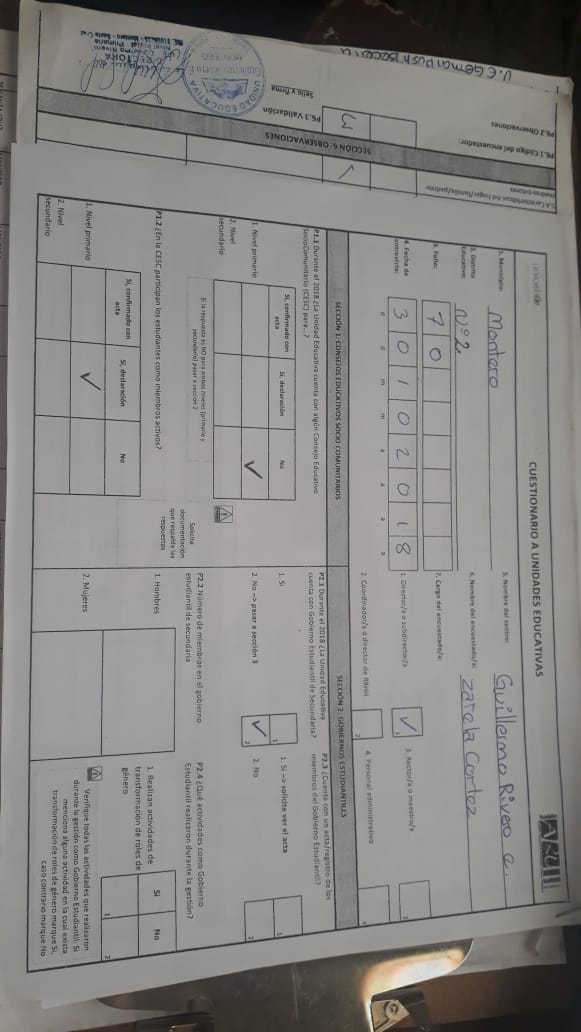 CUESTIONARIO A UNIDADES EDUCATIVAS
unicef
1. Municipio: Montero
2. Distrito Educativo: Nº2
3. Folio: 7 0
4. Fecha de entrevista: 3 0 1 0 2 0 1 8
d d m m a a a a
5. Nombre del centro: Guillermo Rivero a.
6. Nombre del encuestado/a: Zarela Cortez
7. Cargo del encuestado/a:
1. Director/a o subdirector/a ✓ 1
2. Coordinador/a o director de RRHH 2
3. Rector/a o maestro/a 3
4. Personal administrativo 4
SECCIÓN 1: CONSEJOS EDUCATIVOS SOCIO COMUNITARIOS
P1.1 Durante el 2018 ¿La Unidad Educativa cuenta con algún Consejo Educativo
SocioComunitario (CESC) para...?
Si, confirmado con acta
Si, declaración
No
1. Nivel primario ✓
2. Nivel secundario
Si la respuesta es NO para ambos niveles (primario y
secundario) pasar a sección 2
P1.2 ¿En la CESC participan los estudiantes como miembros activos?
Si, confirmado con acta
Si, declaración
No
1. Nivel primario ✓
2. Nivel secundario
SECCIÓN 2: GOBIERNOS ESTUDIANTILES
P2.1 Durante el 2018 ¿La Unidad Educativa
cuenta con Gobierno Estudiantil de Secundaria?
1. Si 1
2. No --> pasar a sección 3 ✓ 2
Solicita
documentación
que respalde las
respuestas
P2.2 Número de miembros en el gobierno
estudiantil de secundaria
1. Hombres
2. Mujeres
P2.3 ¿Cuenta con un acta/registro de los
miembros del Gobierno Estudiantil?
1. Si --> solicite ver el acta 1
2. No 2
P2.4 ¿Qué actividades como Gobierno
Estudiantil realizaron durante la gestión?
Si No
1. Realizan actividades de
transformación de roles de
género
1 2
Verifique todas las actividades que realizaron
durante la gestión como Gobierno Estudiantil. Si
menciona alguna actividad en la cual exista
transformación de roles de género marque Si,
caso contrario marque No
madres-tutores ✓
SECCIÓN 6: OBSERVACIONES
P6.1. Código del encuestador: 3
P6.2 Observaciones
P6.3 Validación
Sello y firma
UNIDAD EDUCATIVA
MONTERO
DIRECTORA
U.E. German Bush Becerra